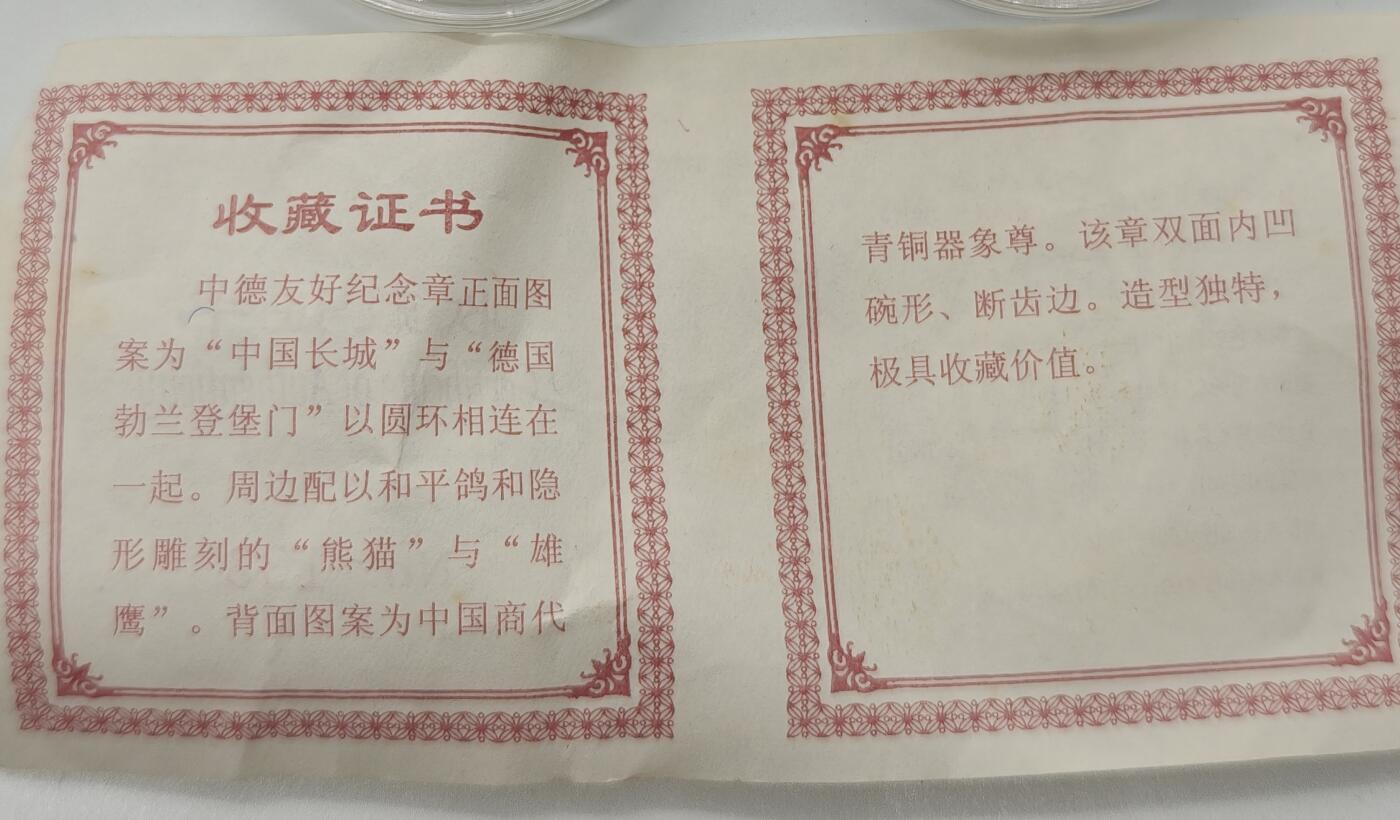 收藏证书
中德友好纪念章正面图
案为“中国长城”与“德国
勃兰登堡门”以圆环相连在
一起。周边配以和平鸽和隐
形雕刻的“熊猫”与“雄
鹰”。背面图案为中国商代
青铜器象尊。该章双面内凹
碗形、断齿边。造型独特，
极具收藏价值。